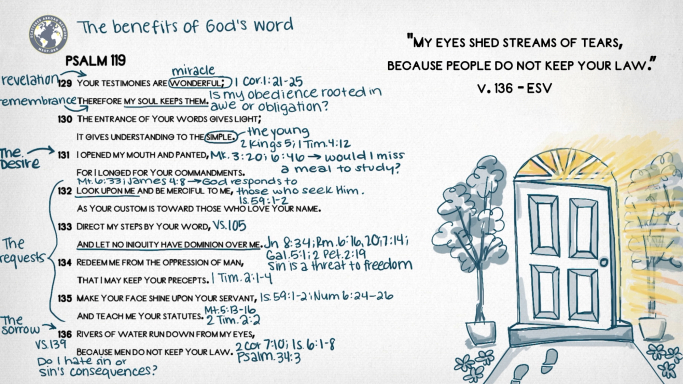 The benefits of God's word
PSALM 119
miracle
revelation
129 YOUR TESTIMONIES ARE WONDERFUL; 1 Cor. 1:21-25
remembrance
THEREFORE MY SOUL KEEPS THEM. Is my obedience rooted in
awe or obligation?
130 THE ENTRANCE OF YOUR WORDS GIVES LIGHT;
IT GIVES UNDERSTANDING TO THE SIMPLE. the young
2 Kings 5; 1 Tim. 4:12
The Desire
131 I OPENED MY MOUTH AND PANTED, Mk. 3:20; 6:46 → would I miss
a meal to study?
FOR I LONGED FOR YOUR COMMANDMENTS.
Mt. 6:33; James 4:8 → God responds to
132 LOOK UPON ME AND BE MERCIFUL TO ME, those who seek Him.
Is. 59:1-2
AS YOUR CUSTOM IS TOWARD THOSE WHO LOVE YOUR NAME.
133 DIRECT MY STEPS BY YOUR WORD, VS. 105
The requests
AND LET NO INIQUITY HAVE DOMINION OVER ME. Jn 8:34; Rm. 6:16, 20; 7:14;
Gal. 5:1; 2 Pet. 2:19
134 REDEEM ME FROM THE OPPRESSION OF MAN, sin is a threat to freedom
THAT I MAY KEEP YOUR PRECEPTS. 1 Tim. 2:1-4
135 MAKE YOUR FACE SHINE UPON YOUR SERVANT, Is. 59:1-2; Num 6:24-26
AND TEACH ME YOUR STATUTES. Mt. 5:13-16
2 Tim. 2:2
The sorrow
136 RIVERS OF WATER RUN DOWN FROM MY EYES,
VS. 139
BECAUSE MEN DO NOT KEEP YOUR LAW. 2 Cor 7:10; Is. 6:1-8
Psalm. 34:3
Do I hate sin or
sin's consequences?
"MY EYES SHED STREAMS OF TEARS,
BECAUSE PEOPLE DO NOT KEEP YOUR LAW."
V. 136 - ESV